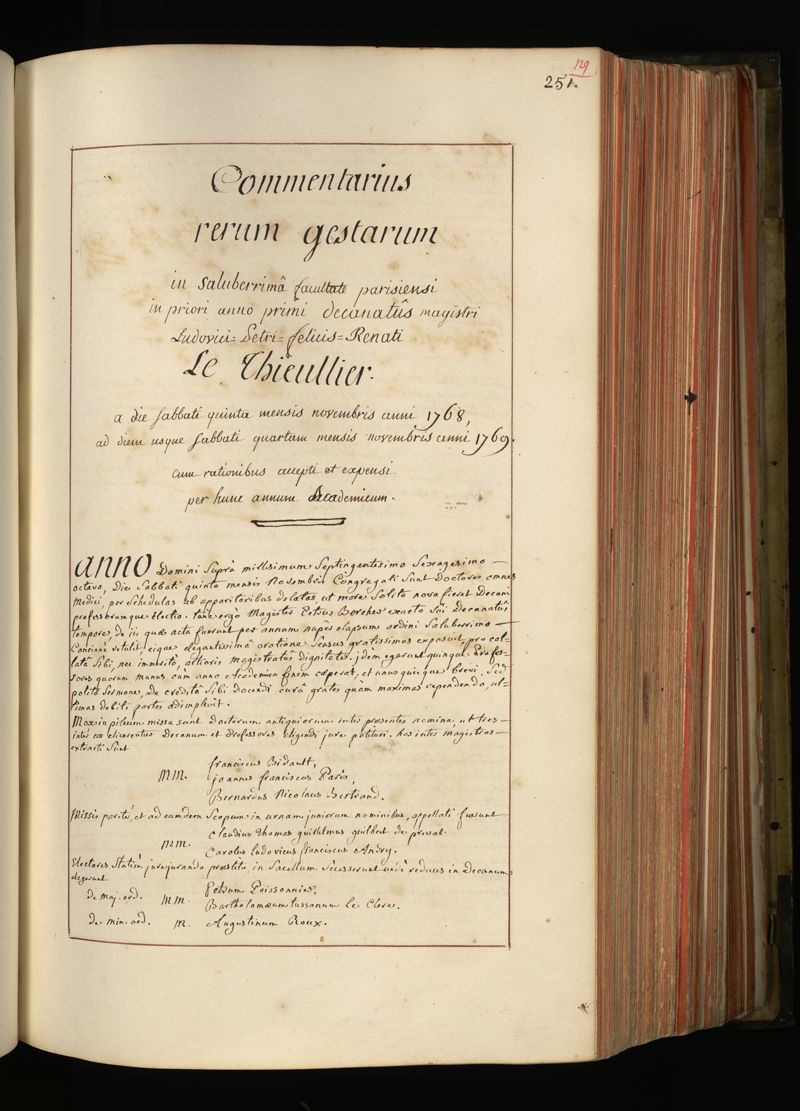 129
251.
Commentarius
rerum gestarum
in saluberrimâ facultate parisiensi
in priori anno primi decanatûs magistri
Ludovici=Petri=felicis=Renati
Le Thieullier.
a die sabbati quinta mensis novembris anni 1768,
ad diem usque sabbati quartam mensis novembris anni 1769.
cum rationibus accepti et expensi
per hunc annum Academicum.
anno Domini suprà millesimum septingentesimo sexagesimo
octavo, die sabbati quinta mensis novembris Congregati sunt doctores omnes
Medici, per schedulas ab apparitoribus delatas, ut more solito nova fieret Decani
professorumque electio. tunc ergò Magister Petrus Bercher exacto sui Decanatûs
tempore, de iis quæ acta fuerunt per annum nuper elapsum ordini saluberrimo
Concione retulit, eique elegantissimâ oratione sensus gratissimos exposuit, pro col-
latâ sibi, nec immeritò, altioris magistratûs dignitate. idem egerunt quinque Profes-
sores quorum munus cum anno Academico finem ceperat, et unusquisque brevi, sed
polito sermone, de creditâ sibi docendi curâ grates quàm maximas rependendo, ul-
timas debiti partes adimplevit.
Mox in pileum missa sunt doctorum antiquiorum inter presentes nomina, ut tres
inter eos elicerentur Decanum et Professores eligendi jure potituri. hos inter magistros
extracti sunt
franciscus Bidault,
MM. joannes franciscus Paris,
Bernardus Nicolaus Bertrand.
Missis pariter, et ad eumdem scopum in urnam juniorum nominibus, appellati fuerunt
Claudius thomas guillelmus guilbert de preval.
MM.
Carolus Ludovicus franciscus Andry.
Electores statim jurejurando præstito, in sacellum secesserunt undè reduces in Decanum
elegerunt
de maj. ord. MM. Petrum Poissonnier,
Bartholomæum tussanum Le Clerc.
de min. ord. M. Augustinum Roux.